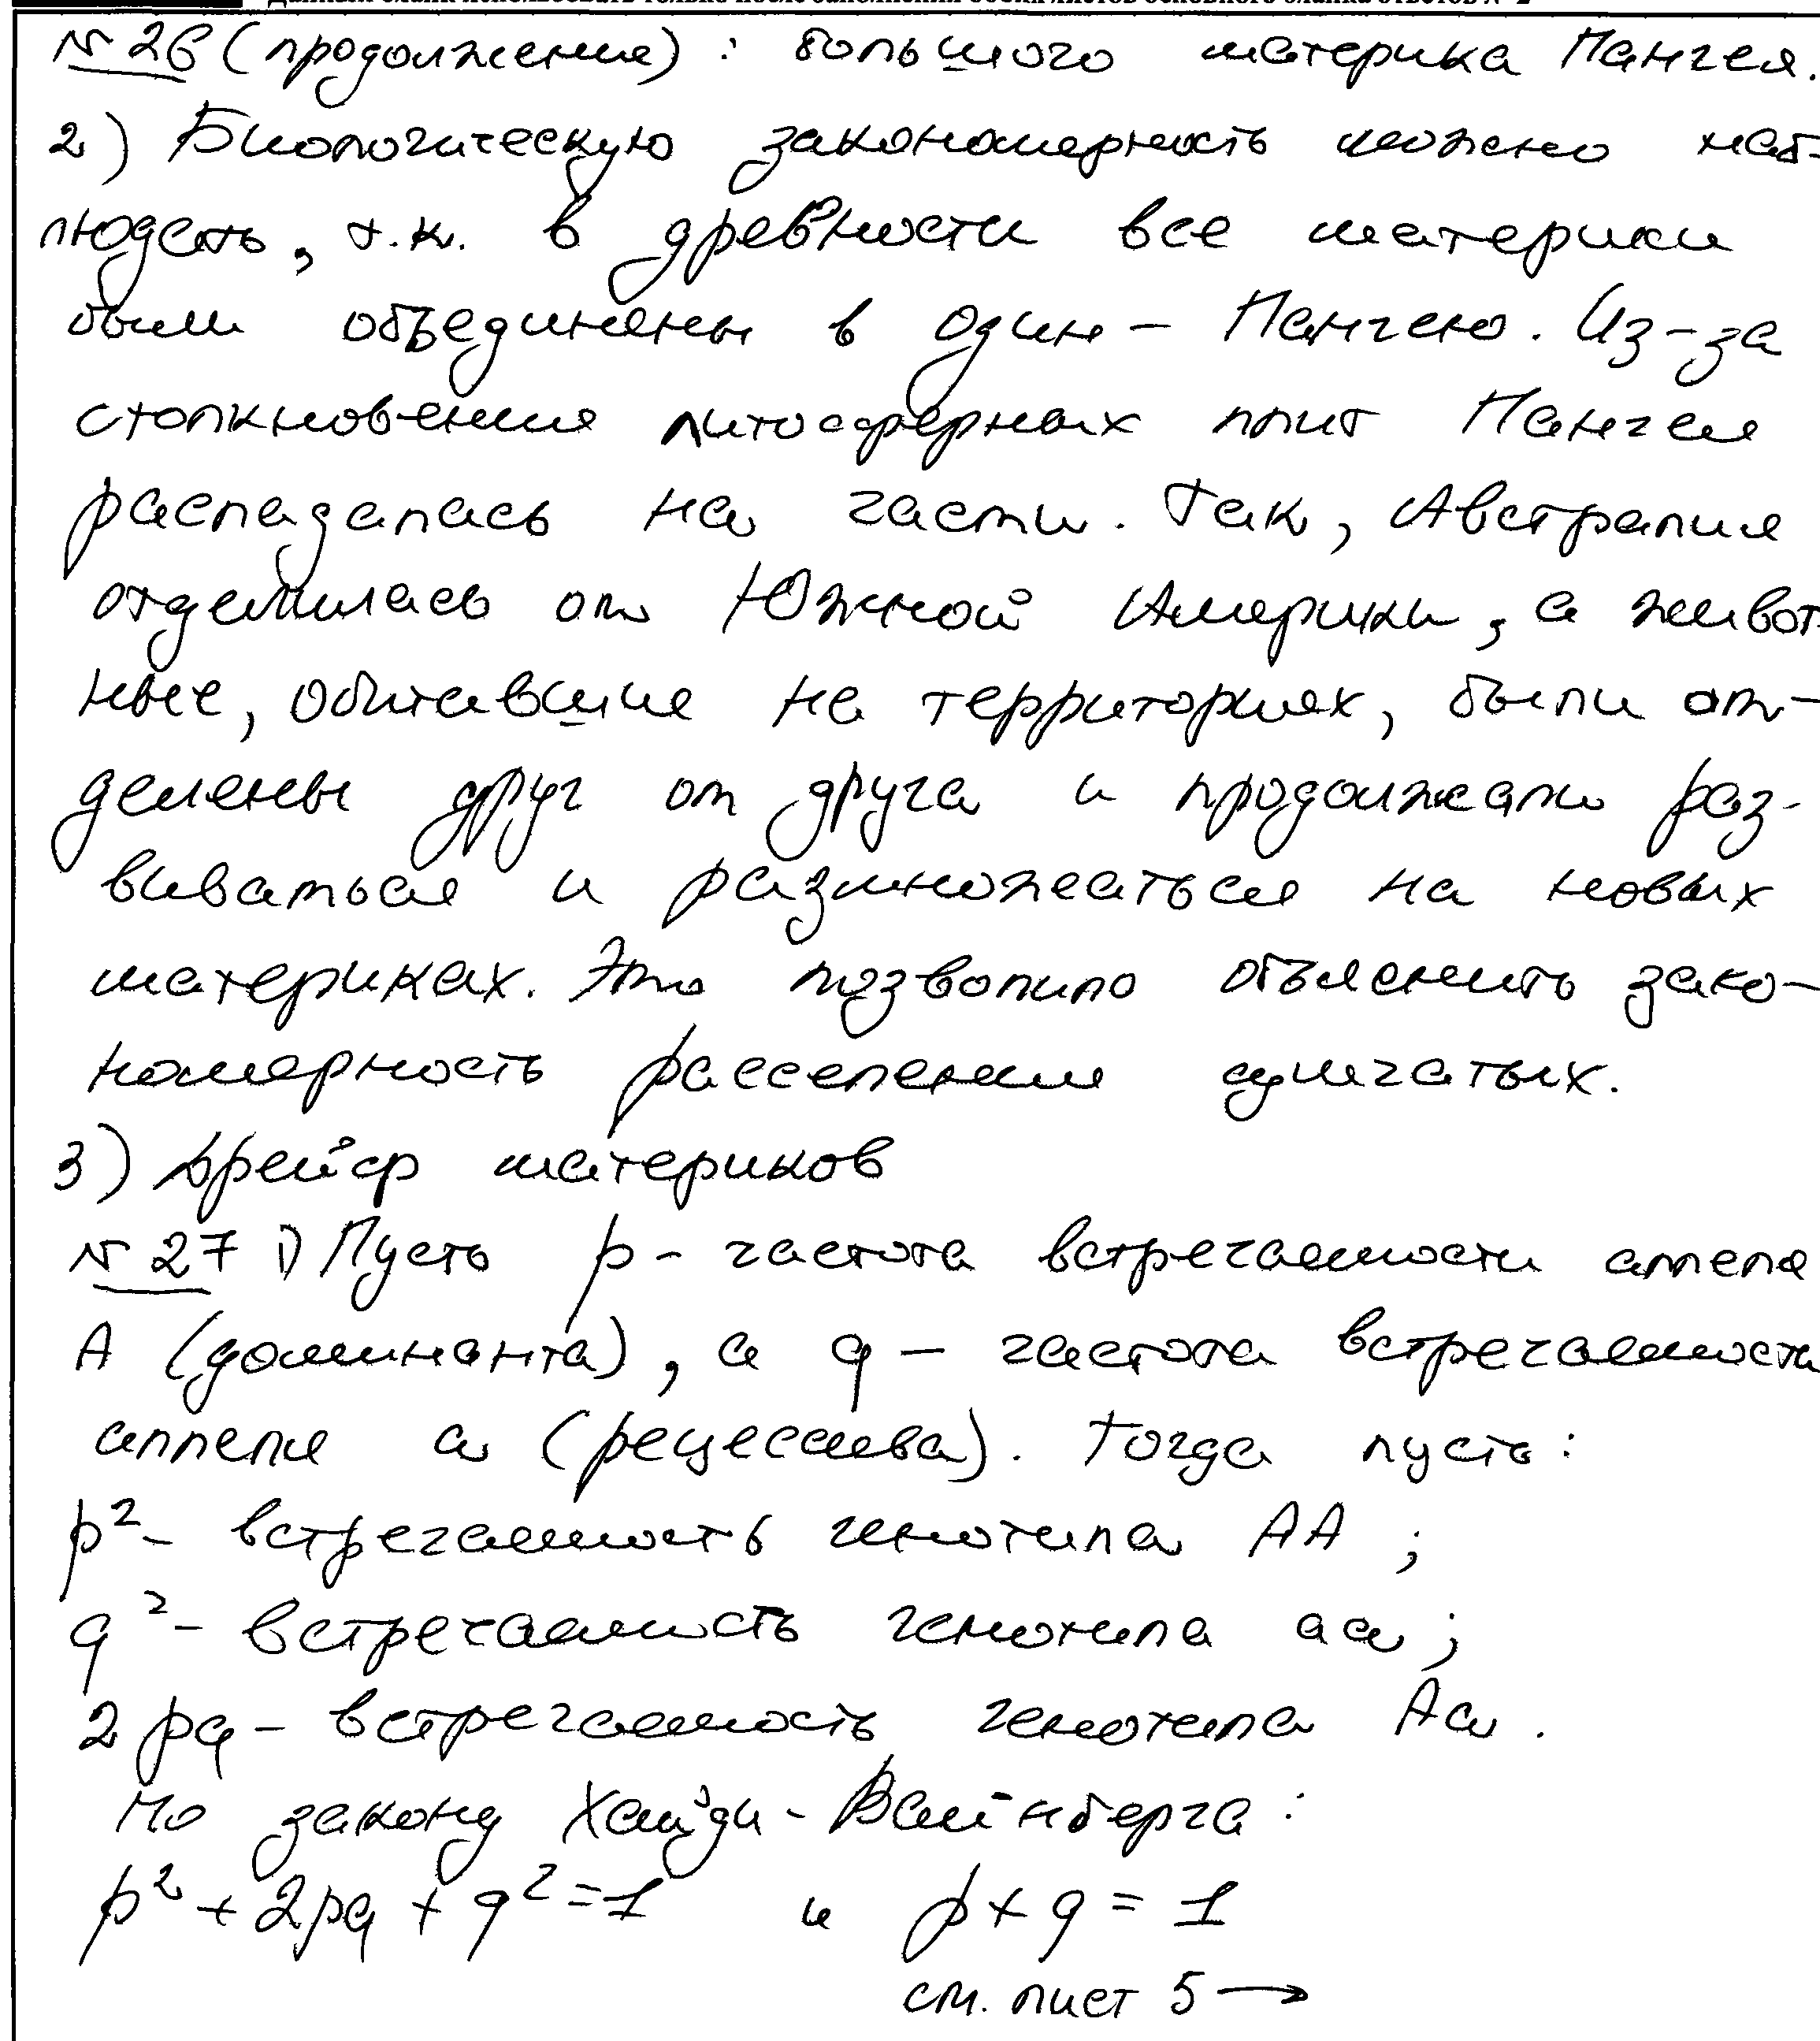 Данный бланк использовать только после заполнения обеих листов основного бланка ответов № 2
№ 26 (продолжение): большого материка Пангея.
2) Биологическую закономерность можно наб-
людать, т.к. в древности все материки
были объединены в один – Пангею. Из-за
столкновения литосферных плит Пангея
распадалась на части. Так, Австралия
отделилась от Южной Америки, а живот
ные, обитавшие на территориях, были от-
делены друг от друга и продолжали раз-
виваться и размножаться на новых
материках. Это позволило объяснить зако-
номерность расселения сумчатых.
3) Дрейф материков
№ 27 1) Пусть p - частота встречаемости аллеля
А (доминанта), а q – частота встречаемости
аллеля а (рецессива). Тогда пусть:
p² - встречаемость генотипа АА ;
q² - встречаемость генотипа аа ;
2pq – встречаемость генотипа Аа .
По закону Хайди - Вайнберга :
p² + 2pq + q² = 1 и p + q = 1
см. лист 5 →